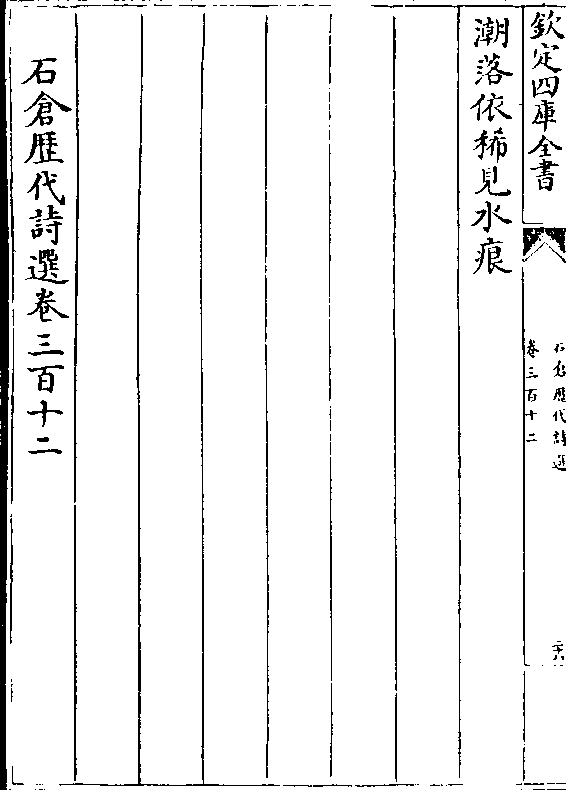 欽定四庫全書
石倉歴代詩選
卷三百十二
潮落依稀見水痕
石倉歴代詩選卷三百十二